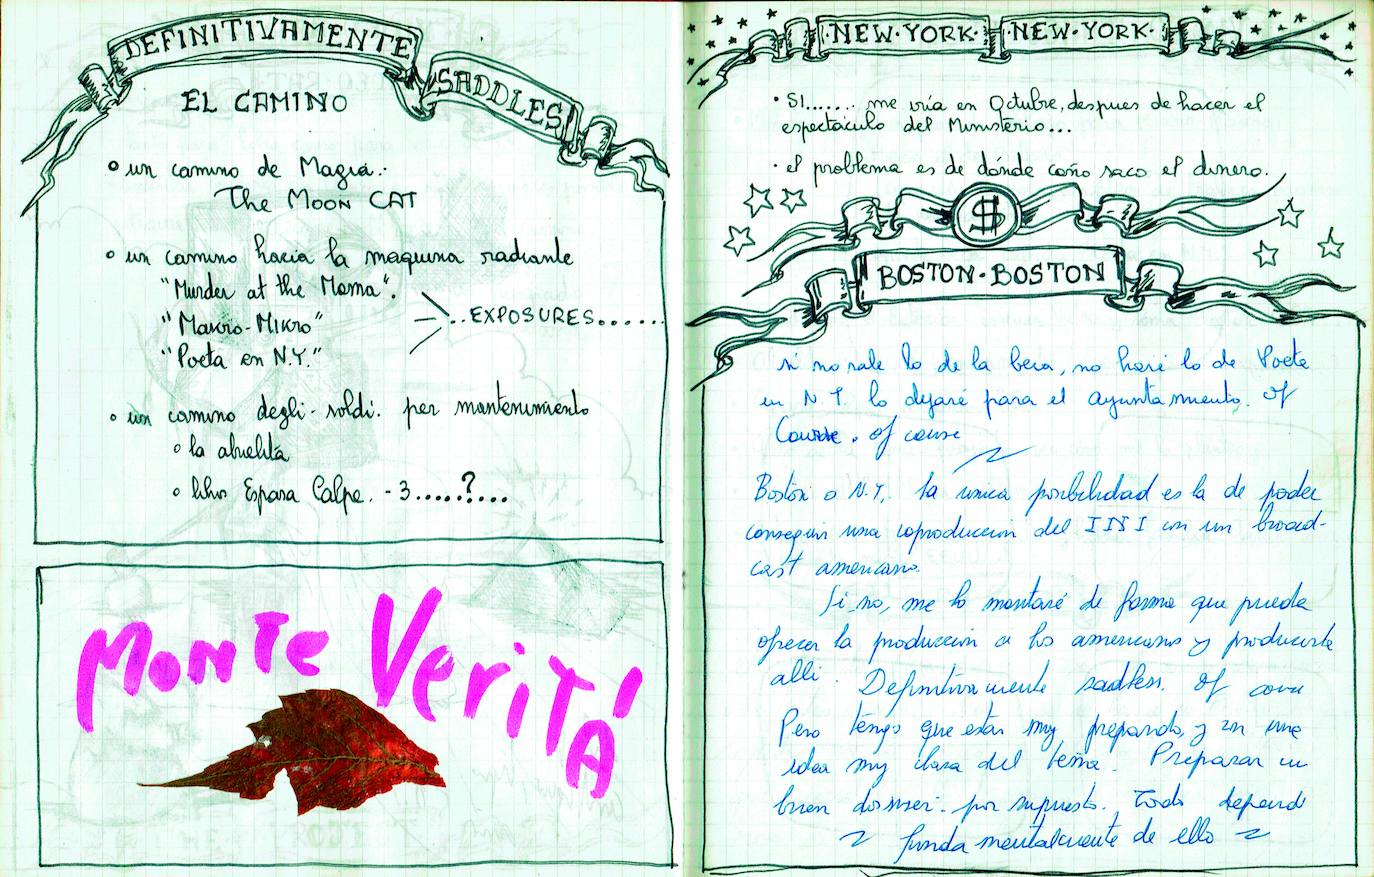 DEFINITIVAMENTE
SADDLES!
EL CAMINO
un camino de Magia..
The MOON CAT
un camino hacia la maquina radiante
"Murder at the Moma".
"Makro-Mikro"
"Poeta en N.Y."
..EXPOSURES......
un camino degli-soldi. per mantenimiento
la abuelita
libros Espasa Calpe. -3.....?....
MONTE VERITÁ
NEW·YORK· NEW·YORK·
· SI....... me iría en Octubre, despues de hacer el
espectáculo del Ministerio...
· el problema es de dónde coño saco el dinero.
$
BOSTON·BOSTON
si no sale lo de la beca, no haré lo de Poeta
en N.Y. lo dejaré para el ayuntamiento. of
Course. of course
Boston o N.Y. la única posibilidad es la de poder
conseguir una coproduccion del INI con un broad-
cast americano.
Si no, me lo montaré de forma que pueda
ofrecer la producción a los americanos y producirla
alli. Definitivamente saddles. of course
Pero tengo que estar muy preparado, y con una
idea muy clara del tema. Preparar un
buen dossier. por supuesto. Todo depende
fundamentalmente de ello